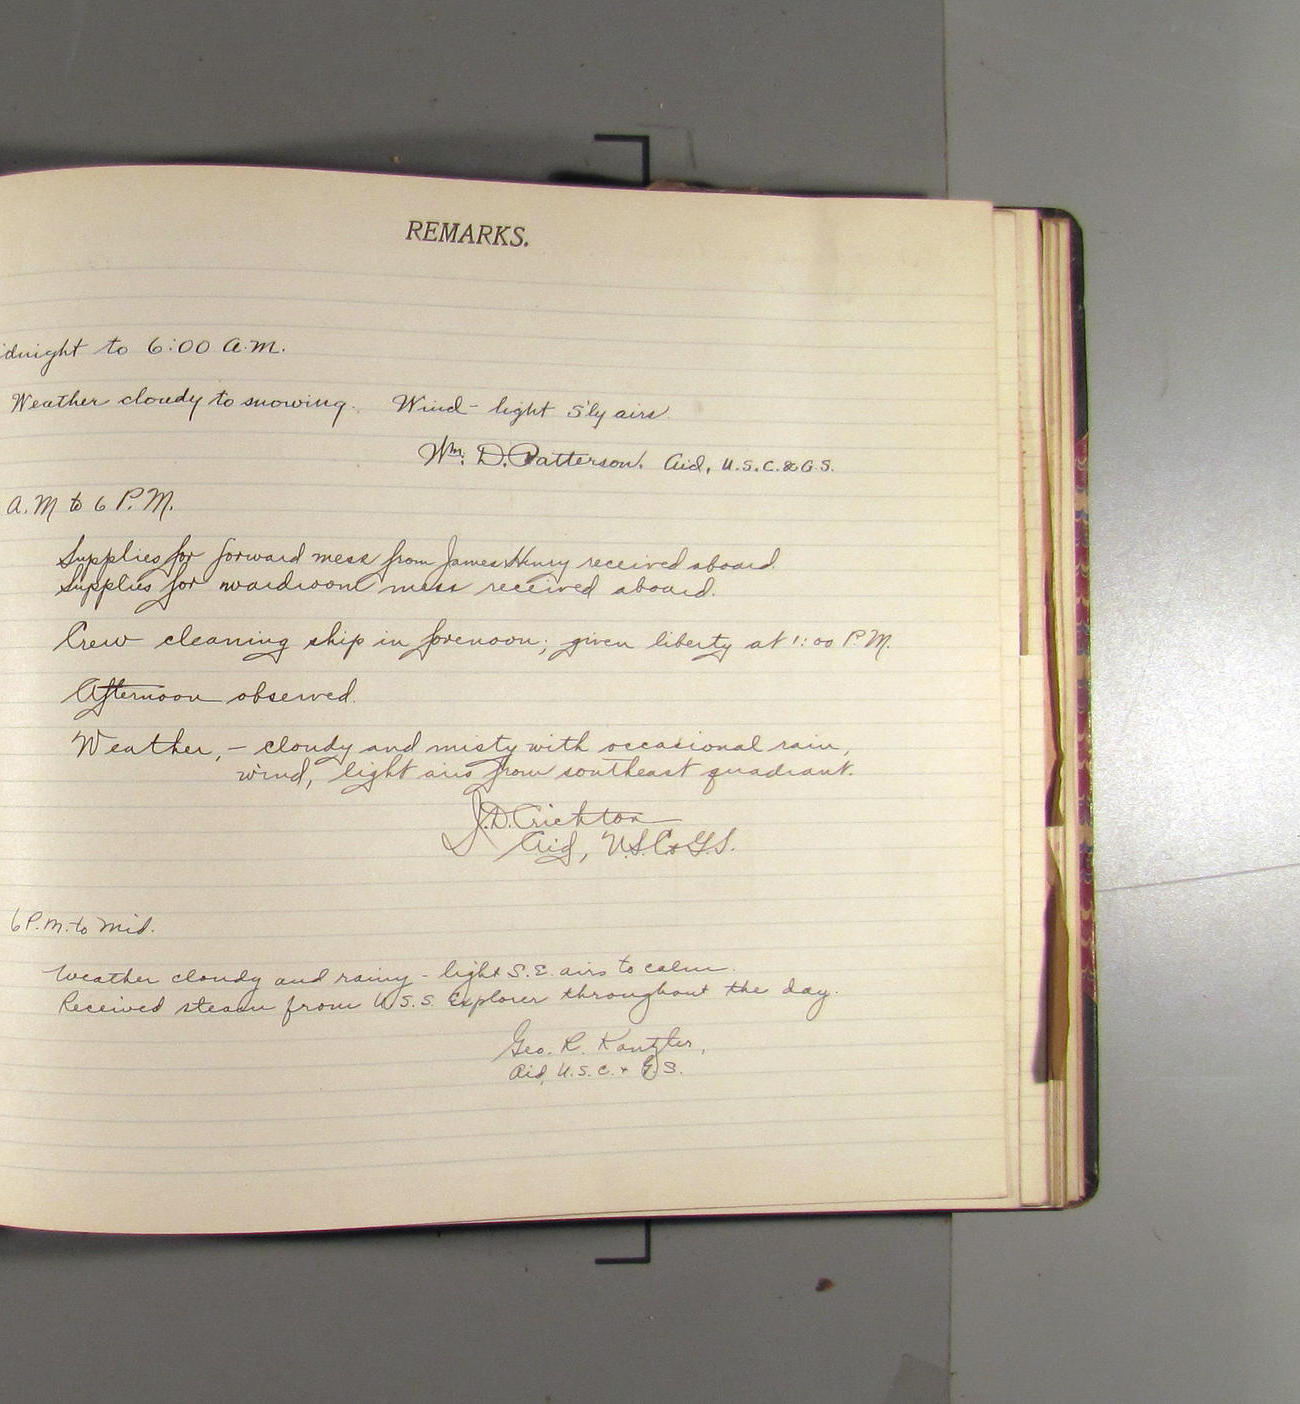 REMARKS.
idnight to 6:00 A.M.
Weather cloudy to snowing. Wind - light S'ly airs
Wm. D. Patterson. Aid, U.S.C.&G.S.
A.M to 6 P.M.
Supplies for forward mess from James Henry received aboard.
Supplies for wardroom mess received aboard.
Crew cleaning ship in forenoon; given liberty at 1:00 P.M.
Afternoon observed.
Weather, - cloudy and misty with occasional rain,
wind, light airs from southeast quadrant.
J.D. Crichton
Aid, U.S.C&G.S.
6 P.M. to Mid.
Weather cloudy and rainy - light S.E. airs to calm.
Received steam from U.S.S. Explorer throughout the day.
Geo. R. Kantzler,
Aid, U.S.C. + G.S.